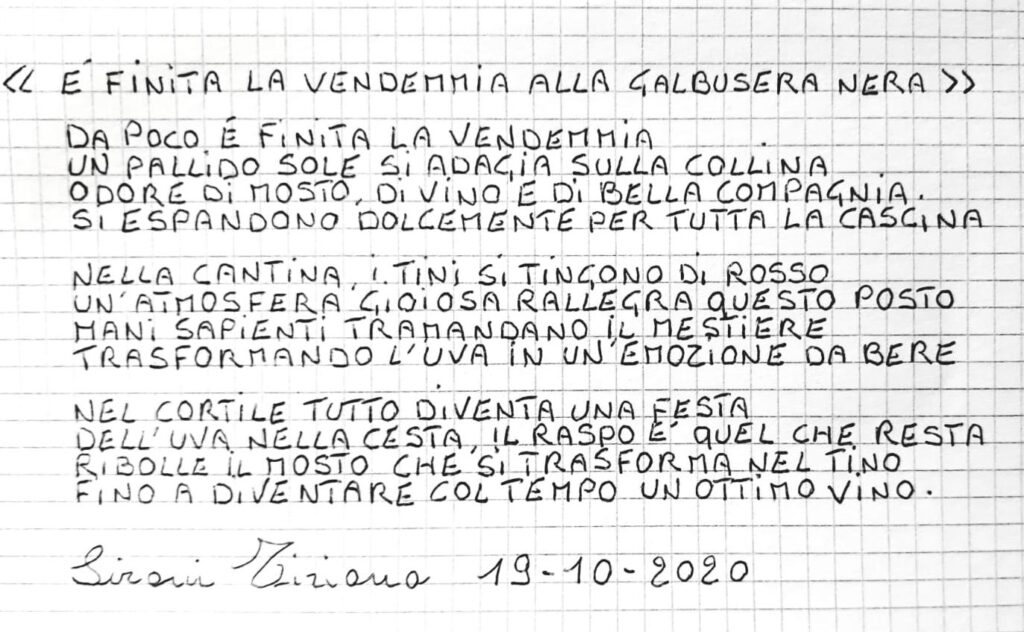 << E' FINITA LA VENDEMMIA ALLA GALBUSERA NERA >>
DA POCO É FINITA LA VENDEMMIA
UN PALLIDO SOLE SI ADAGIA SULLA COLLINA
ODORE DI MOSTO, DI VINO E DI BELLA COMPAGNIA.
SI ESPANDONO DOLCEMENTE PER TUTTA LA CASCINA
NELLA CANTINA, I TINI SI TINGONO DI ROSSO
UN'ATMOSFERA GIOIOSA RALLEGRA QUESTO POSTO
MANI SAPIENTI TRAMANDANO IL MESTIERE
TRASFORMANDO L'UVA IN UN'EMOZIONE DA BERE
NEL CORTILE TUTTO DIVENTA UNA FESTA
DELL'UVA NELLA CESTA, IL RASPO E' QUEL CHE RESTA
RIBOLLE IL MOSTO CHE SI TRASFORMA NEL TINO
FINO A DIVENTARE COL TEMPO UN OTTIMO VINO.
Sironi Tiziana 19-10-2020